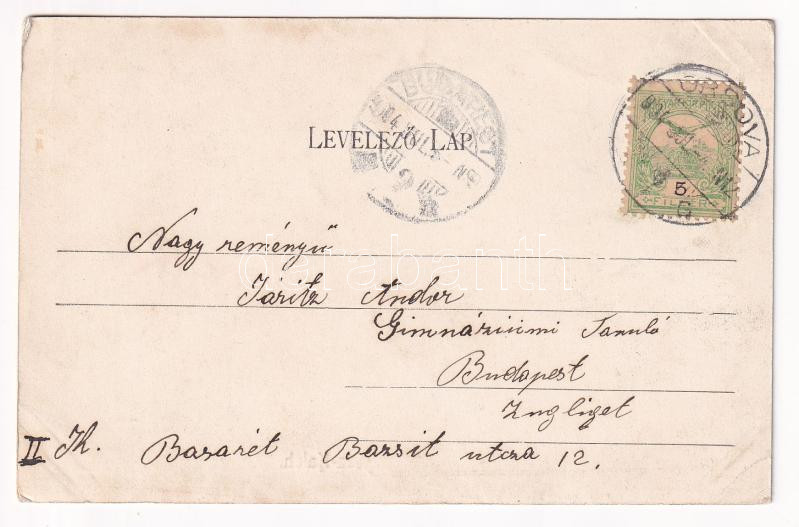 LEVELEZŐ LAP
BUDAPEST
ORSOVA
5
FILLÉR
darabanth
Nagy reményű
Jaritz Andor
Gimnáziumi Tanuló
Budapest
Zugliget
II Ik. Basarét Bazsit utcza 12.